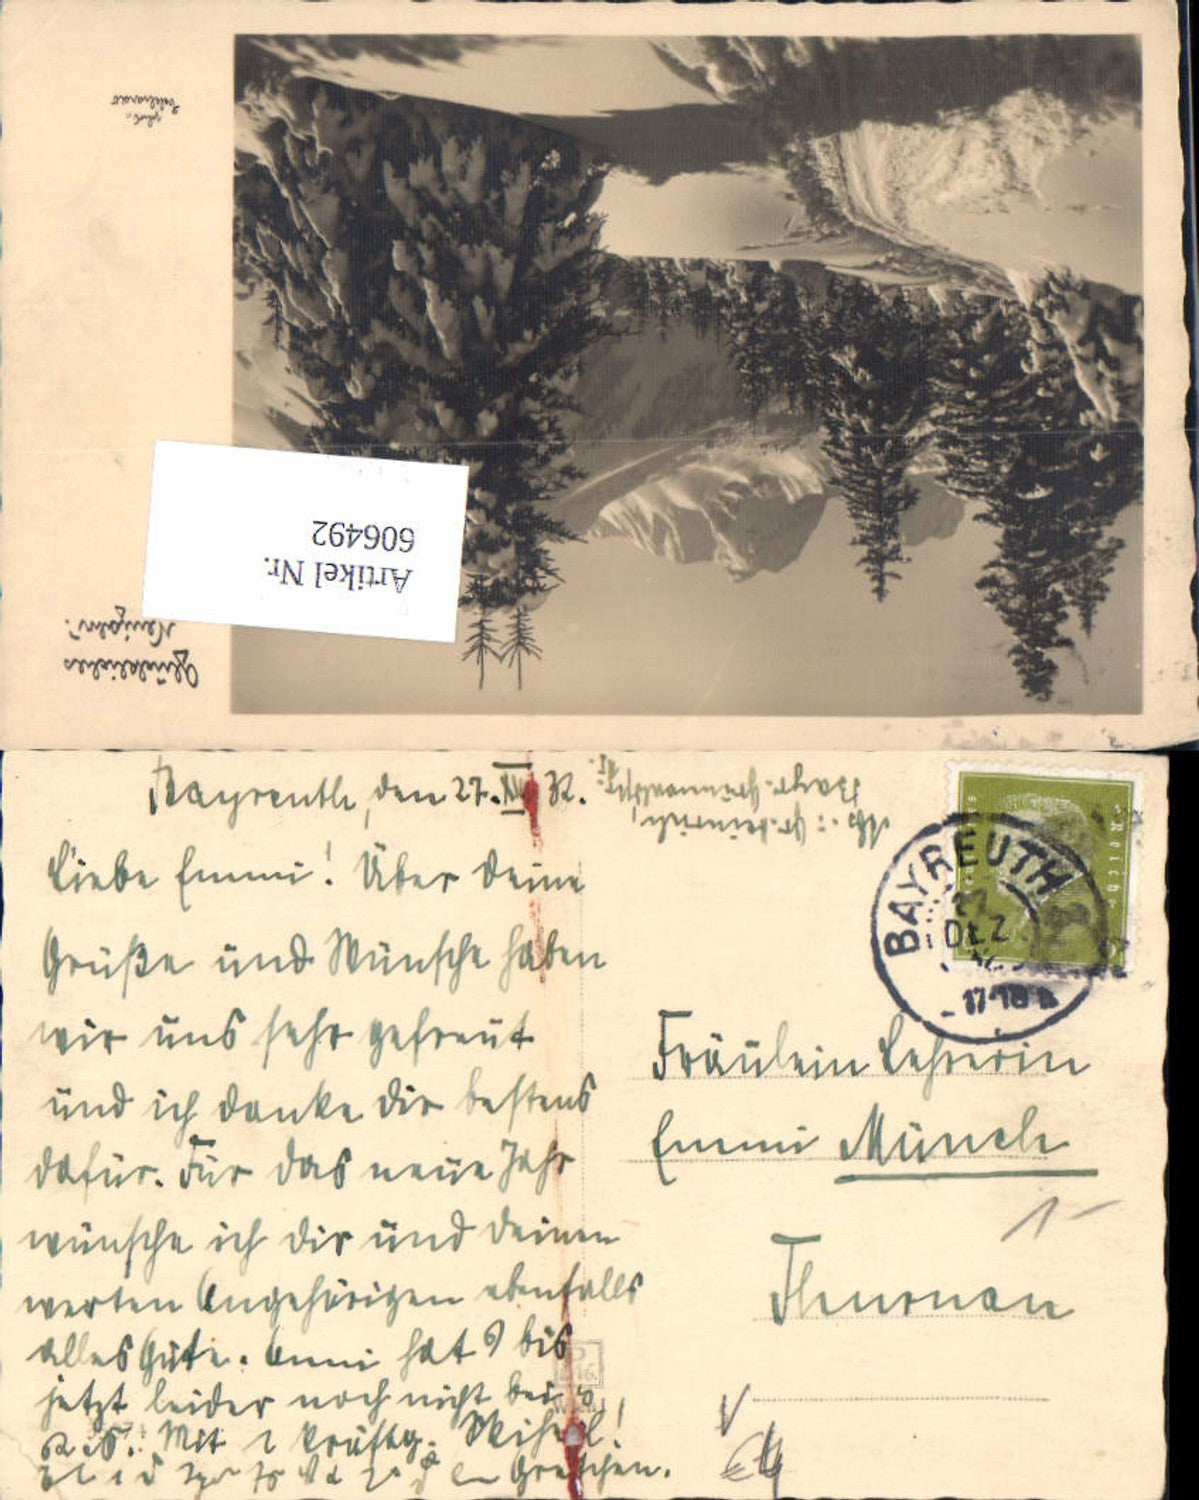 phot.
Glückliches
Neujahr!
Artikel Nr.
606492
Bayreuth, den 27. XII 32.
Abs.: Gr. Heinrich,
Bayr.
Liebe Emmi! Über deine
Grüße und Wünsche haben
wir uns sehr gefreut
und ich danke dir bestens
dafür. Für das neue Jahr
wünsche ich dir und deinen
werten Angehörigen ebenfalls
alles Gute. Anni hat bis
jetzt leider noch nicht bei
Mit kräftig.
Gretchen.
BAYREUTH
27
DEZ
17-18
Reich
Fräulein Lehrerin
Emmi Münch
Thurnau